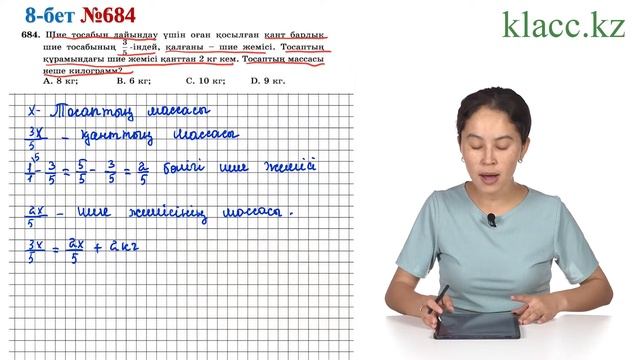 8-бет №684
klacc.kz
684. Шие тосабын дайындау үшін оған қосылған қант барлық
шие тосабының 3/5-індей, қалғаны – шие жемісі. Тосаптың
құрамындағы шие жемісі қанттан 2 кг кем. Тосаптың массасы
неше килограмм?
A. 8 кг; B. 6 кг; C. 10 кг; D. 9 кг.
x - Тосаптың массасы
3x/5 - қанттың массасы
1/1 - 3/5 = 5/5 - 3/5 = 2/5 бөлігі шие жемісі
2x/5 - шие жемісінің массасы.
3x/5 = 2x/5 + 2кг